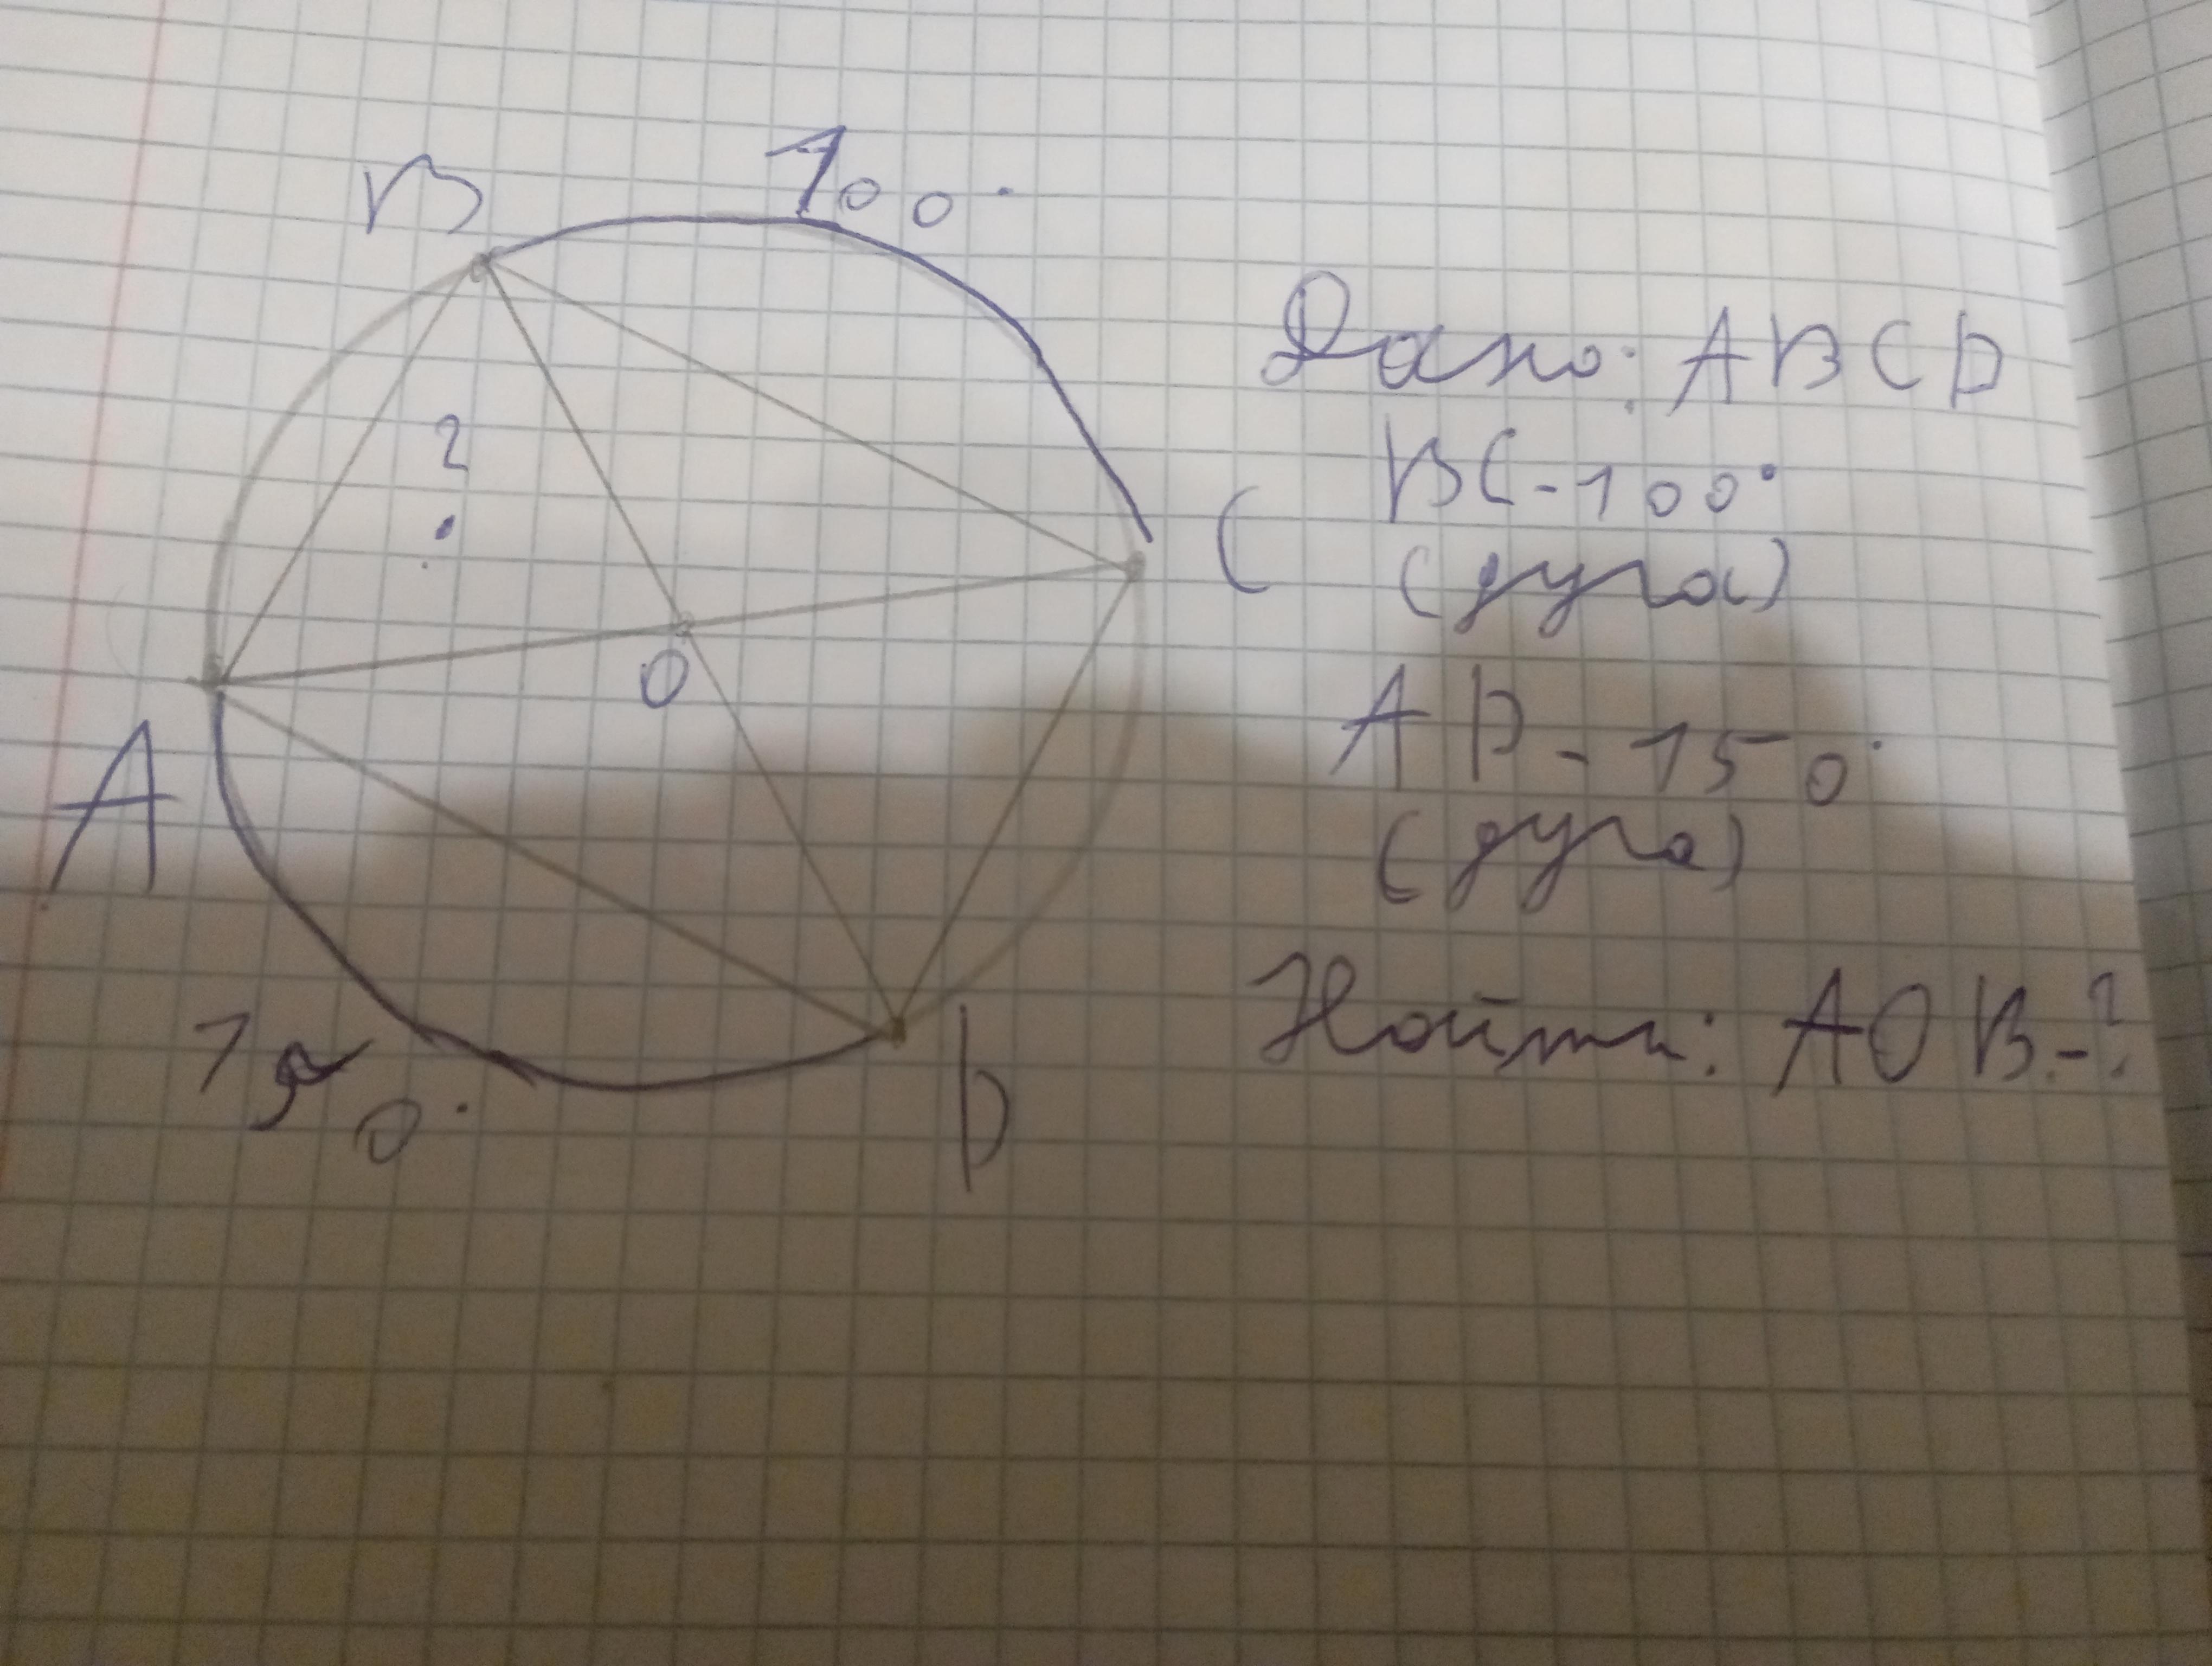 B
100°
?
C
O
A
150°
D
Дано: ABCD
BC - 100°
(дуга)
AD - 150°
(дуга)
Найти: AOB - ?